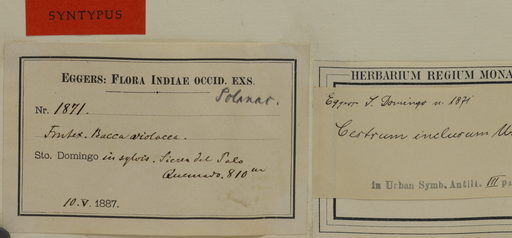 SYNTYPUS
EGGERS: FLORA INDIAE OCCID. EXS.
Solanac.
Nr. 1871.
Frutex. Bacca violacea.
Sto. Domingo in sylvis. Sierra del Palo
Quemado. 810 m
10. V. 1887.
HERBARIUM REGIUM MONA
Eggers S. Domingo n. 1871
Cestrum inclusum U
in Urban Symb. Antill. III pa